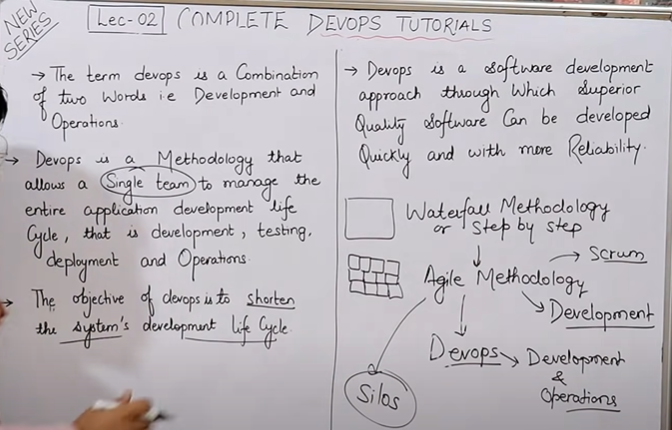 NEW
SERIES
Lec-02 COMPLETE DEVOPS TUTORIALS
→ The term devops is a Combination
of two Words i.e Development and
Operations.
→ Devops is a Methodology that
allows a Single team to manage the
entire application development life
Cycle, that is development, testing,
deployment and Operations.
→ The objective of devops is to shorten
the system's development life Cycle
→ Devops is a Software development
approach through Which Superior
Quality Software Can be developed
Quickly and with more Reliability.
Waterfall Methodology
or Step by step
Agile Methodology
→ Scrum
Development
Devops → Development
&
Operations
Silos